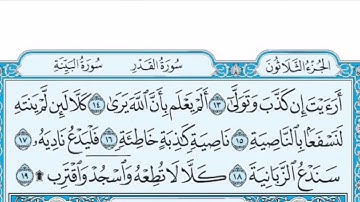 الجزء الثلاثون سورة القدر سورة البينة
أَرَءَيْتَ إِن كَذَّبَ وَتَوَلَّىٰٓ ١٣ أَلَمْ يَعْلَم بِأَنَّ ٱللَّهَ يَرَىٰ ١٤ كَلَّا لَئِن لَّمْ يَنتَهِ
لَنَسْفَعًۢا بِٱلنَّاصِيَةِ ١٥ نَاصِيَةٍ كَٰذِبَةٍ خَاطِئَةٍ ١٦ فَلْيَدْعُ نَادِيَهُۥ ١٧
سَنَدْعُ ٱلزَّبَانِيَةَ ١٨ كَلَّا لَا تُطِعْهُ وَٱسْجُدْ وَٱقْتَرِب ۩ ١٩